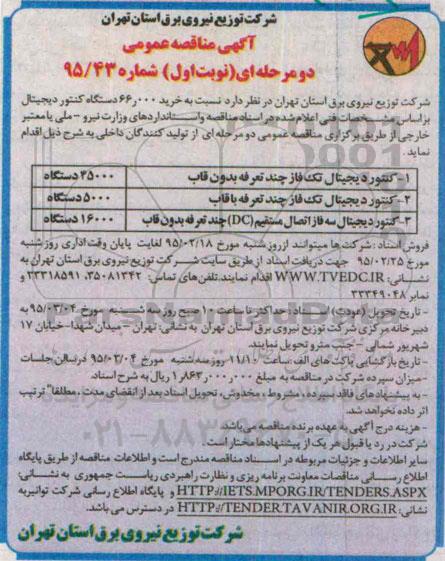 شرکت توزیع نیروی برق استان تهران
آگهی مناقصه عمومی
دو مرحله ای (نوبت اول) شماره ۹۵/۴۳
شرکت توزیع نیروی برق استان تهران در نظر دارد نسبت به خرید ۶۶٫۰۰۰ دستگاه کنتور دیجیتال
براساس مشخصات فنی اعلام شده در اسناد مناقصه و استانداردهای وزارت نیرو - ملی یا معتبر
خارجی از طریق برگزاری مناقصه عمومی دو مرحله ای از تولید کنندگان داخلی به شرح ذیل اقدام
نماید.
۱- کنتور دیجیتال تک فاز چند تعرفه بدون قاب ۴۵۰۰۰ دستگاه
۲- کنتور دیجیتال تک فاز چند تعرفه با قاب ۵۰۰۰ دستگاه
۳- کنتور دیجیتال سه فاز اتصال مستقیم (DC) چند تعرفه بدون قاب ۱۶۰۰۰ دستگاه
فروش اسناد: شرکت ها میتوانند از روز شنبه مورخ ۹۵/۰۲/۱۸ لغایت پایان وقت اداری روز شنبه
مورخ ۹۵/۰۲/۲۵ جهت دریافت اسناد از طریق سایت شرکت توزیع نیروی برق استان تهران به
نشانی: WWW.TVEDC.IR اقدام نمایند. تلفن های تماس: ۳۵۰۸۱۳۴۲، ۳۳۳۱۸۵۹۱ و
نمابر ۳۳۳۴۹۰۴۸
- تاریخ تحویل (عودت) اسناد: حداکثر تا ساعت ۱۰ صبح روز سه شنبه مورخ ۹۵/۰۳/۰۴ به
دبیرخانه مرکزی شرکت توزیع نیروی برق استان تهران به نشانی: تهران - میدان شهدا- خیابان ۱۷
شهریور شمالی - جنب مترو تحویل نمایند.
- تاریخ بازگشایی پاکت های الف: ساعت ۱۱/۱۰ روز سه شنبه مورخ ۹۵/۰۳/۰۴ در سالن جلسات
- میزان سپرده شرکت در مناقصه به مبلغ ۱٫۸۶۳٫۰۰۰٫۰۰۰ ریال به شرح اسناد.
- به پیشنهادهای فاقد سپرده، مشروط، مخدوش، تحویل اسناد بعد از انقضای مدت، مطلقا" ترتیب
اثر داده نخواهد شد.
- هزینه درج آگهی به عهده برنده مناقصه می باشد.
شرکت در رد یا قبول هر یک از پیشنهادها مختار است.
سایر اطلاعات و جزئیات مربوطه در اسناد مناقصه مندرج است و اطلاعات مناقصه از طریق پایگاه
اطلاع رسانی مناقصات معاونت برنامه ریزی و نظارت راهبردی ریاست جمهوری به نشانی:
HTTP://IETS.MPORG.IR/TENDERS.ASPX و پایگاه اطلاع رسانی شرکت توانیر به
نشانی: HTTP://TENDER.TAVANIR.ORG.IR در دسترس می باشد.
شرکت توزیع نیروی برق استان تهران